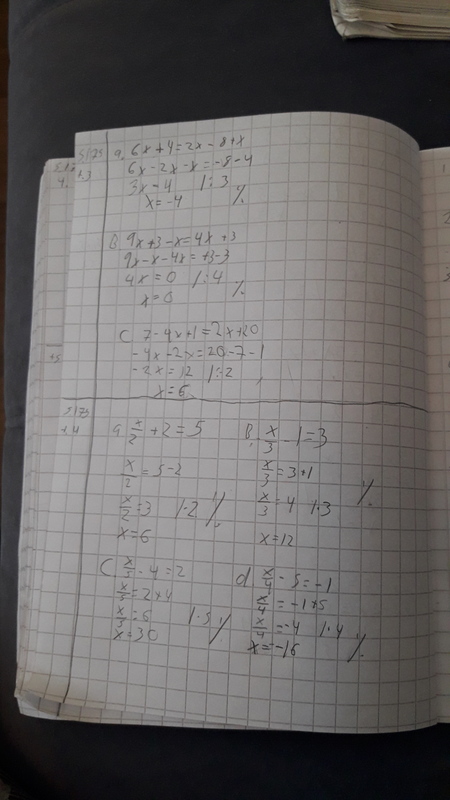 S175
t.3
a. 6x+4=2x-8+x
6x-2x-x=-8-4
3x-4 |:3
x=-4 %
B 9x+3-x=4x+3
9x-x-4x=+3-3
4x=0 |:4
x=0 %
C 7-4x+1=2x+20
-4x-2x=20-7-1
-2x=12 |:2
x=6
S175
t.4
a x/2+2=5
x/2=5-2
x/2=3 |·2 %
x=6
B. x/3-1=3
x/3=3+1
x/3=4 |·3 %
x=12
C x/5-4=2
x/5=2+4
x/5=6 |·5 %
x=30
d x/4-5=-1
x/4=-1+5
x/4=-4 |·4
x=-16 %